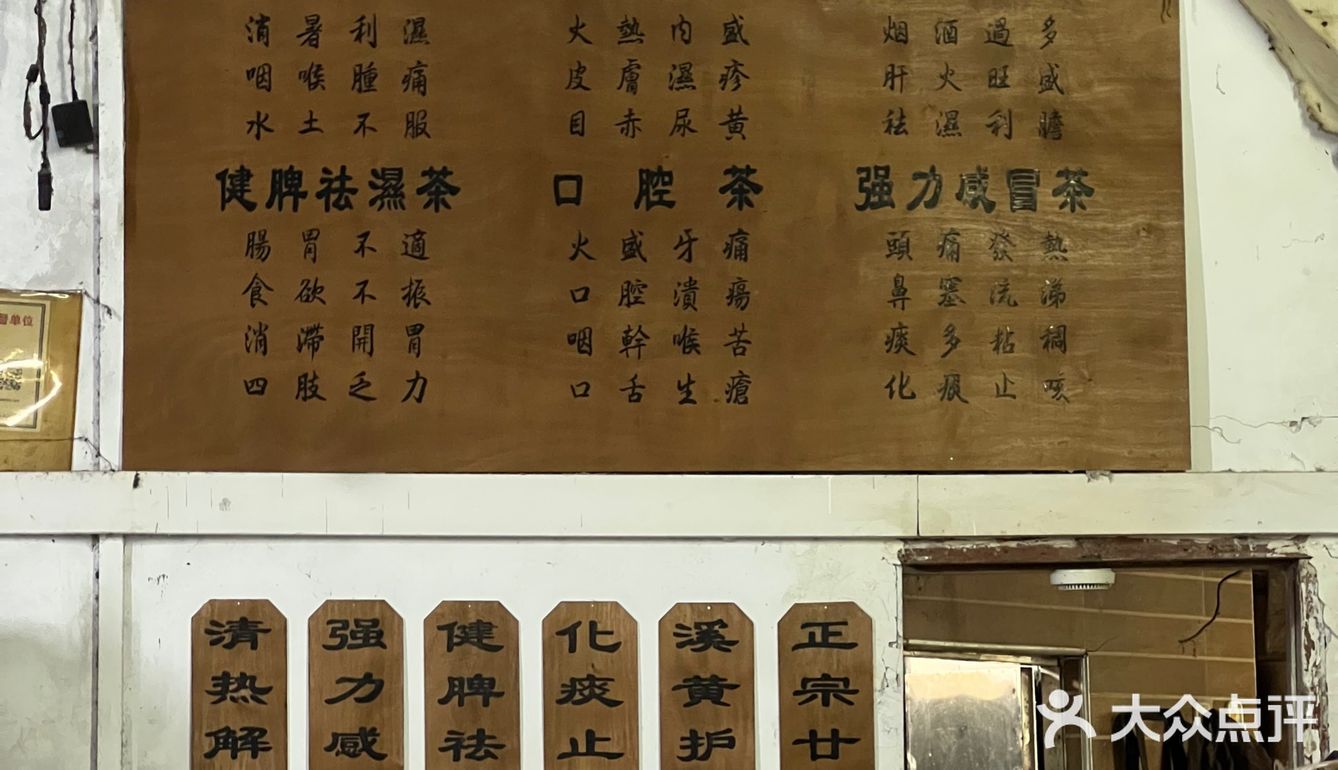 消暑利濕
咽喉腫痛
水土不服
健脾祛濕茶
腸胃不適
食欲不振
消滯開胃
四肢乏力
火熱内盛
皮膚濕疹
目赤尿黄
口腔茶
火盛牙痛
口腔潰瘍
咽幹喉苦
口舌生瘡
烟酒過多
肝火旺盛
祛濕利膽
强力感冒茶
頭痛發熱
鼻塞流涕
痰多粘稠
化痰止咳
单位
清热解
强力感
健脾祛
化痰止
溪黄护
正宗廿
大众点评